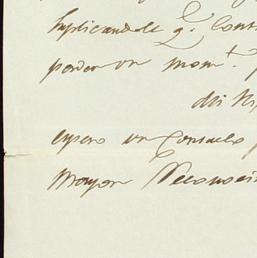 Suplicandole q.e Cont
perder un mom.to
espero un Consuelo
mayor Reconoci